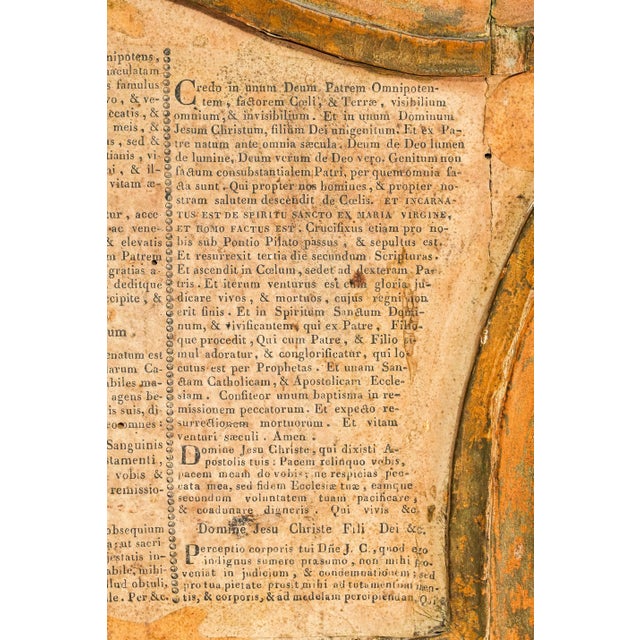 nipotens,
naculatam
s famulus
vo, & ve-
ccatis, &
meis, &
us, sed &
tianis, vi-
i, & il-
vitam æ-
tur, acce
ac vene-
& elevatis
m Patrem
gratias a-
deditque
ccipite, &
um
enatum est
arum Ca-
abiles ma-
agens be-
is suis, di-
omnes:
Sanguinis
stamenti,
vobis &
remissio-
obsequium
a; ut sacri-
jestatis in-
abile, mihi
llud obtuli,
le. Per &c.
Credo in unum Deum Patrem Omnipoten-
tem, factorem Cœli, & Terræ, visibilium
omnium, & invisibilium. Et in unum Dominum
Jesum Christum, filium Dei unigenitum. Et ex Pa-
tre natum ante omnia sæcula. Deum de Deo lumen
de lumine, Deum verum de Deo vero. Genitum non
factum consubstantialem Patri, per quem omnia fa-
cta sunt. Qui propter nos homines, & propter no-
stram salutem descendit de Cœlis. ET INCARNA-
TUS EST DE SPIRITU SANCTO EX MARIA VIRGINE,
ET HOMO FACTUS EST. Crucifixus etiam pro no-
bis sub Pontio Pilato passus, & sepultus est.
Et resurrexit tertia die secundum Scripturas.
Et ascendit in Cœlum, sedet ad dexteram Pa-
tris. Et iterum venturus est cum gloria ju-
dicare vivos, & mortuos, cujus regni non
erit finis. Et in Spiritum Sanctum Domi-
num, & vivificantem, qui ex Patre, Filio-
que procedit, Qui cum Patre, & Filio si-
mul adoratur, & conglorificatur, qui lo-
cutus est per Prophetas. Et unam San-
ctam Catholicam, & Apostolicam Eccle-
siam. Confiteor unum baptisma in re-
missionem peccatorum. Et expecto re-
surrectionem mortuorum. Et vitam
venturi sæculi. Amen.
Domine Jesu Christe, qui dixisti A-
postolis tuis: Pacem relinquo vobis,
pacem meam do vobis: ne respicias pec-
cata mea, sed fidem Ecclesiæ tuæ, eamque
secundum voluntatem tuam pacificare,
& coadunare digneris. Qui vivis &c.
Domine Jesu Christe Fili Dei &c.
Perceptio corporis tui Dñe J. C., quod ego
indignus sumere præsumo, non mihi pro-
veniat in judicium, & condemnationem: sed
pro tua pietate prosit mihi ad totamentum men-
tis, & corporis, & ad medelam percipiendam. Qui